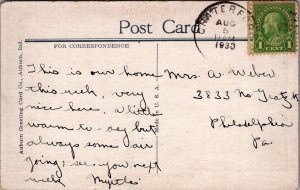 Post Card
FOR CORRESPONDENCE
AUG
1930
1 CENT 1
Auburn Greeting Card Co., Auburn, Ind.
Made in U.S.A.
This is our home
this week, very
nice here, a little
warm to-day but
always some air
going; see you next
week Myrtle
Mrs. A. Weber
3833 No
Philadelphia
Pa.